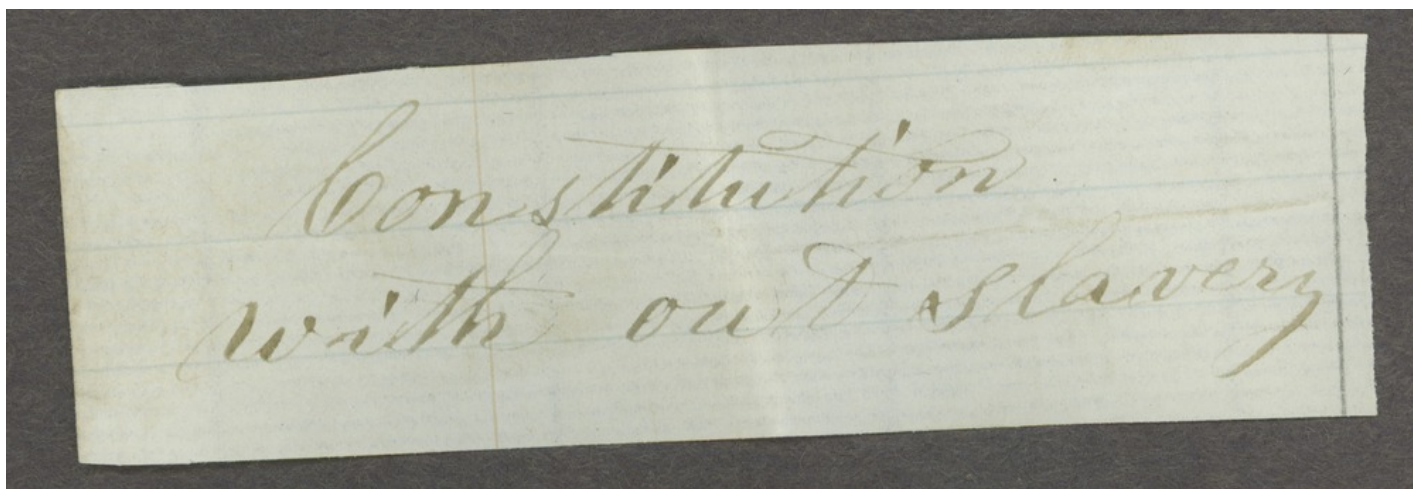 Constitution
with out slavery